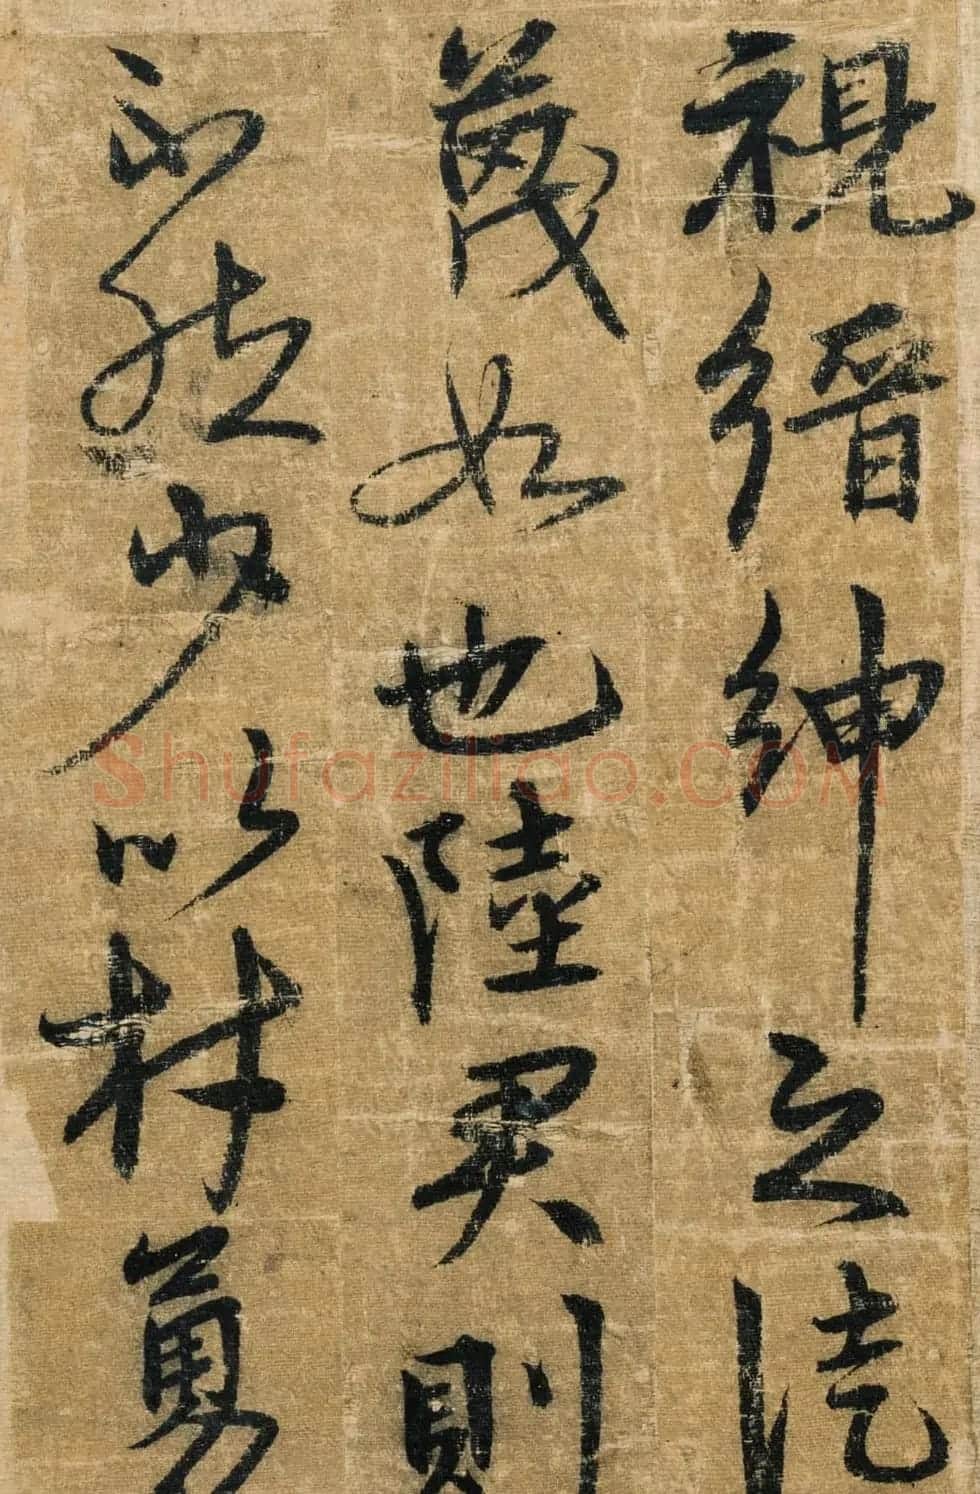 視縉紳之徒
蔑如也陸君則
不然少以材勇
Shufaziliao.COM